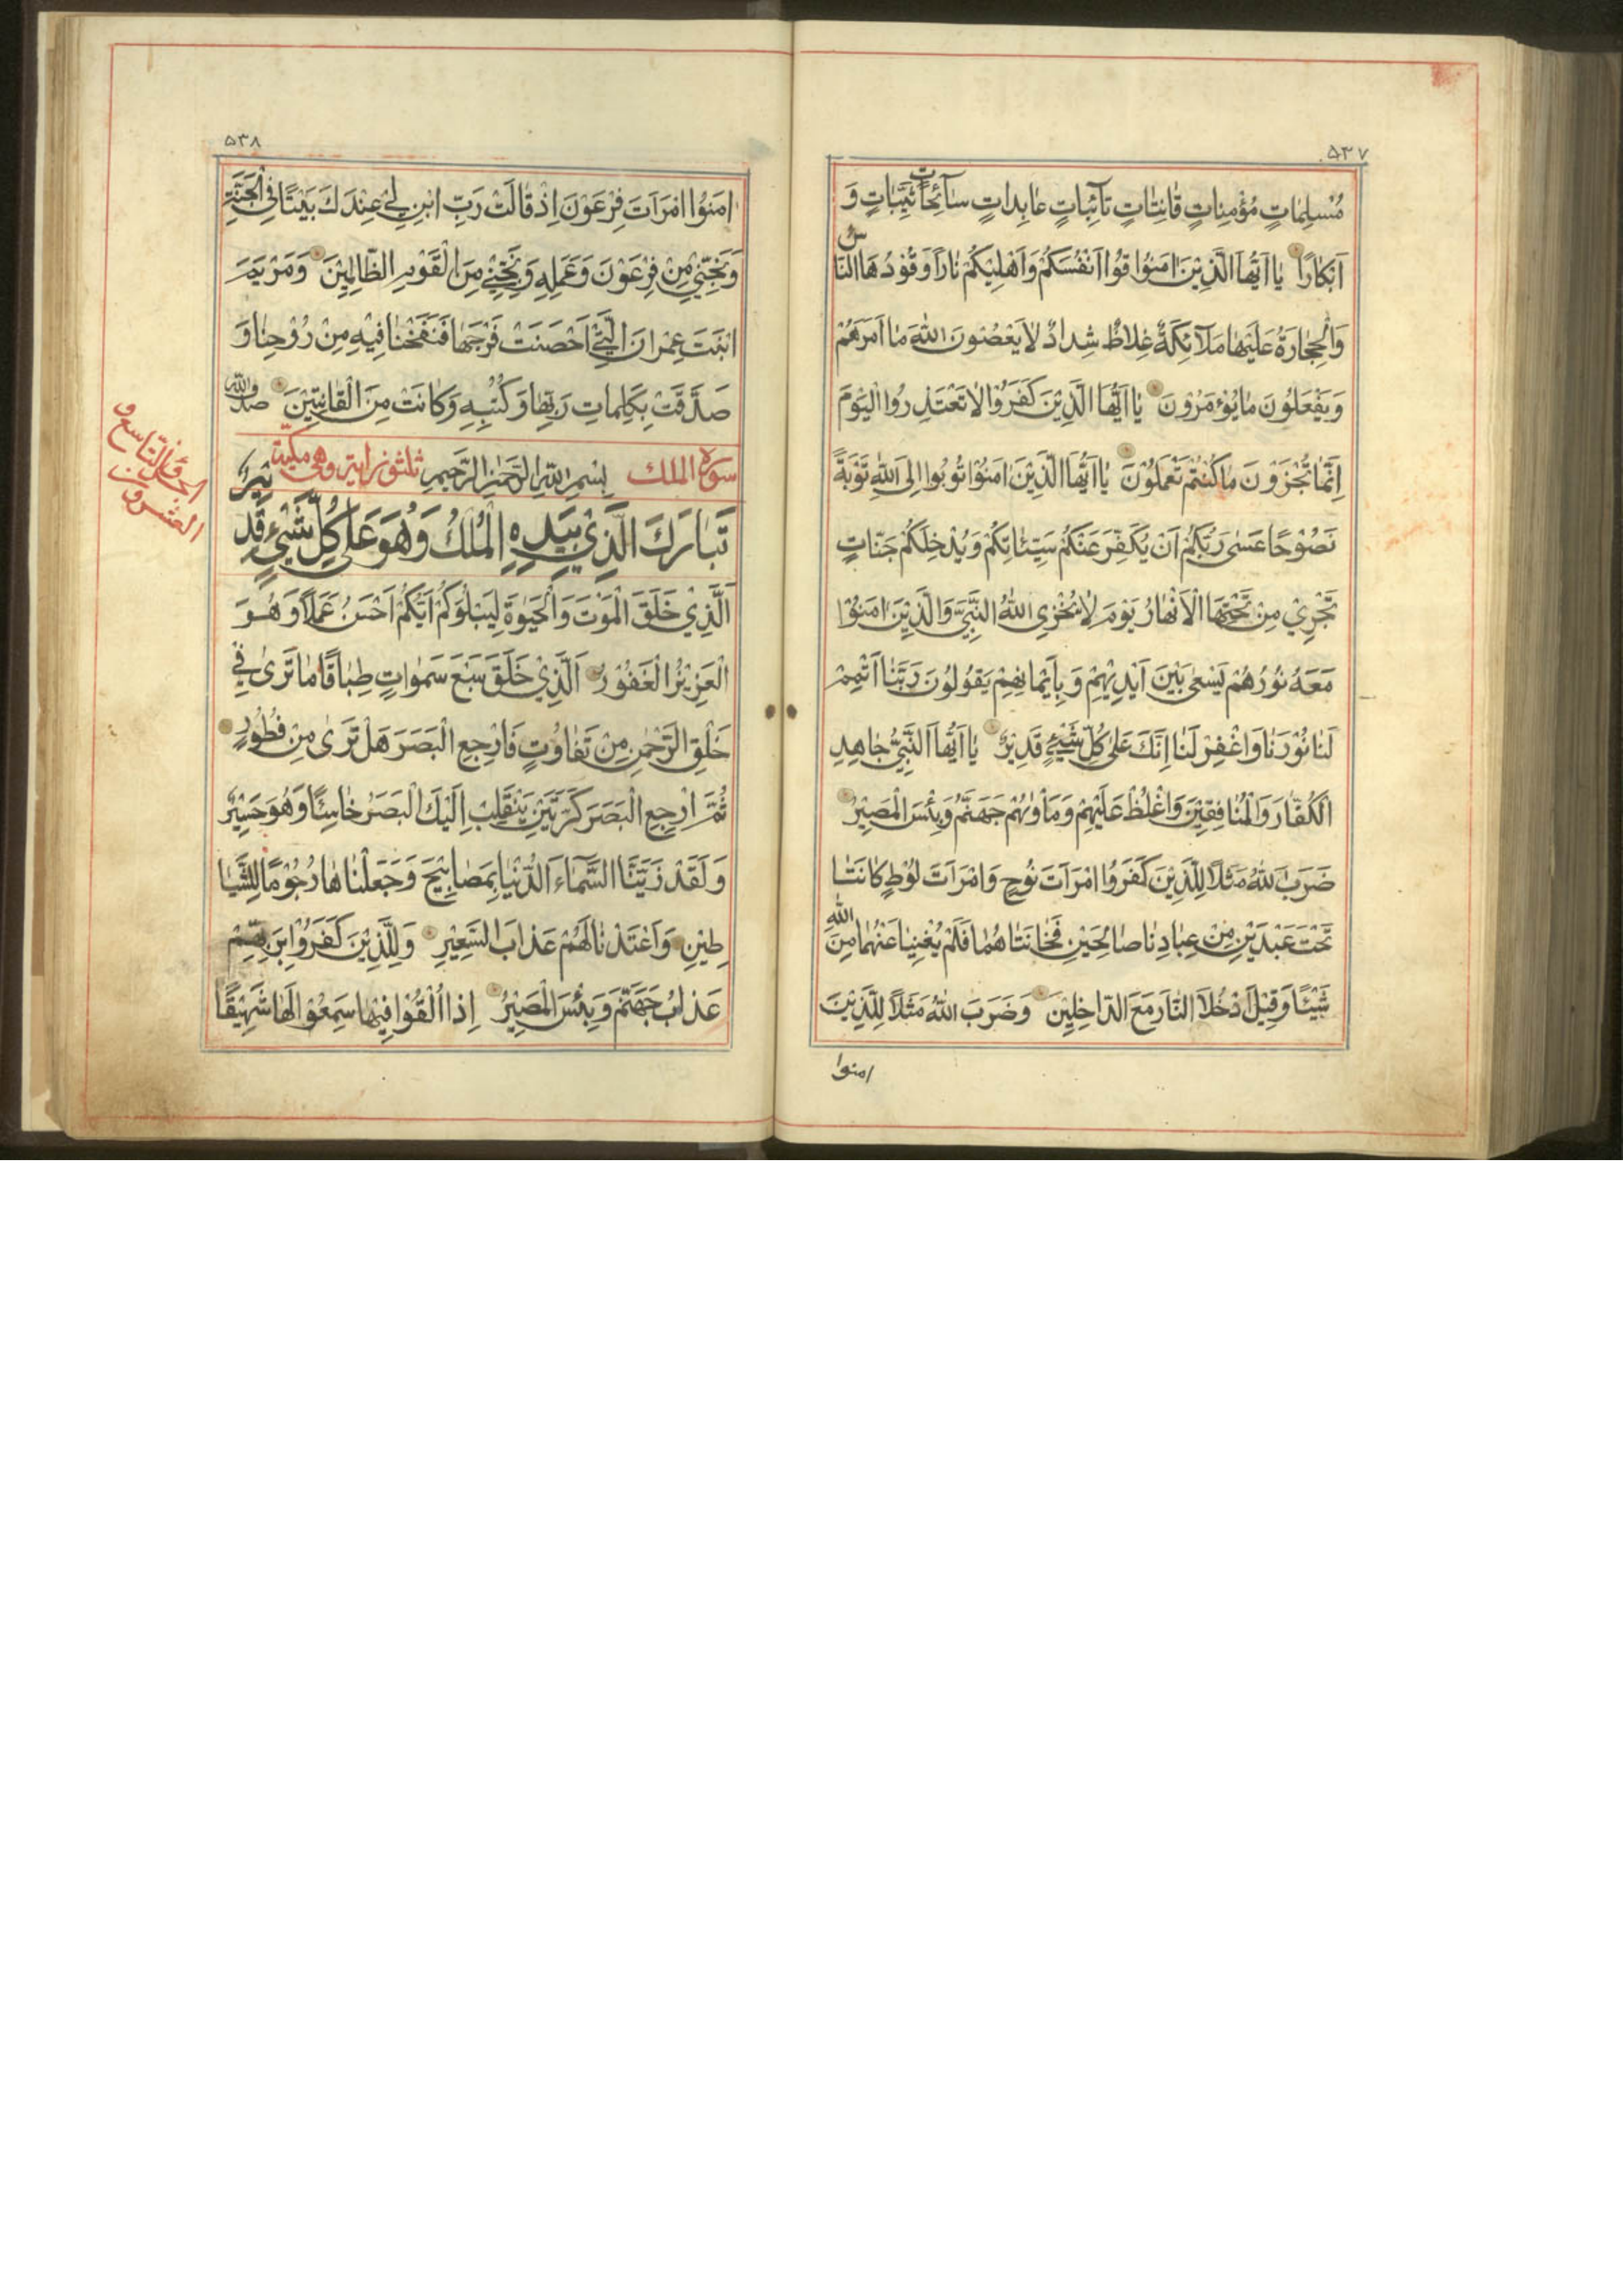 ۵۳۷
مُسْلِماتٍ مُؤْمِناتٍ قانِتاتٍ تآئِباتٍ عابِداتٍ سآئِحاتٍ ثَيِّباتٍ وَ
اَبْكارًا يا اَيُّهَا الَّذِيْنَ امَنُوْا قُوْا اَنْفُسَكُمْ وَاَهْلِيْكُمْ نارًا وَقُوْدُهَا النّاسُ
وَالْحِجارَةُ عَلَيْها مَلآئِكَةٌ غِلاظٌ شِدادٌ لا يَعْصُوْنَ اللّهَ ما اَمَرَهُمْ
وَيَفْعَلُوْنَ ما يُؤْمَرُوْنَ يا اَيُّهَا الَّذِيْنَ كَفَرُوْا لا تَعْتَذِرُوا الْيَوْمَ
اِنَّما تُجْزَوْنَ ما كُنْتُمْ تَعْمَلُوْنَ يا اَيُّهَا الَّذِيْنَ امَنُوْا تُوْبُوا اِلَى اللّهِ تَوْبَةً
نَصُوْحًا عَسى رَبُّكُمْ اَنْ يُكَفِّرَ عَنْكُمْ سَيِّئاتِكُمْ وَيُدْخِلَكُمْ جَنّاتٍ
تَجْرِيْ مِنْ تَحْتِهَا الْاَنْهارُ يَوْمَ لا يُخْزِى اللّهُ النَّبِيَّ وَالَّذِيْنَ امَنُوْا
مَعَهُ نُوْرُهُمْ يَسْعى بَيْنَ اَيْدِيْهِمْ وَبِاَيْمانِهِمْ يَقُوْلُوْنَ رَبَّنا اَتْمِمْ
لَنا نُوْرَنا وَاغْفِرْ لَنا اِنَّكَ عَلى كُلِّ شَيْءٍ قَدِيْرٌ يا اَيُّهَا النَّبِيُّ جاهِدِ
الْكُفّارَ وَالْمُنافِقِيْنَ وَاغْلُظْ عَلَيْهِمْ وَمَأْويهُمْ جَهَنَّمُ وَبِئْسَ الْمَصِيْرُ
ضَرَبَ اللّهُ مَثَلًا لِلَّذِيْنَ كَفَرُوا امْرَاَتَ نُوْحٍ وَامْرَاَتَ لُوْطٍ كانَتا
تَحْتَ عَبْدَيْنِ مِنْ عِبادِنا صالِحَيْنِ فَخانَتاهُما فَلَمْ يُغْنِيا عَنْهُما مِنَ اللّهِ
شَيْئًا وَقِيْلَ ادْخُلَا النّارَ مَعَ الدّاخِلِيْنَ وَضَرَبَ اللّهُ مَثَلًا لِلَّذِيْنَ
امنوا
۵۳۸
امَنُوا امْرَاَتَ فِرْعَوْنَ اِذْ قالَتْ رَبِّ ابْنِ لِيْ عِنْدَكَ بَيْتًا فِى الْجَنَّةِ
وَنَجِّنِيْ مِنْ فِرْعَوْنَ وَعَمَلِهِ وَنَجِّنِيْ مِنَ الْقَوْمِ الظّالِمِيْنَ وَمَرْيَمَ
ابْنَتَ عِمْرانَ الَّتِيْ اَحْصَنَتْ فَرْجَها فَنَفَخْنا فِيْهِ مِنْ رُوْحِنا وَ
صَدَّقَتْ بِكَلِماتِ رَبِّها وَكُتُبِهِ وَكانَتْ مِنَ الْقانِتِيْنَ
سورة الملك بِسْمِ اللّهِ الرَّحْمنِ الرَّحِيْمِ ثلثون اية وهى مكية
تَبارَكَ الَّذِيْ بِيَدِهِ الْمُلْكُ وَهُوَ عَلى كُلِّ شَيْءٍ قَدِيْرٌ
الَّذِيْ خَلَقَ الْمَوْتَ وَالْحَيوةَ لِيَبْلُوَكُمْ اَيُّكُمْ اَحْسَنُ عَمَلًا وَهُوَ
الْعَزِيْزُ الْغَفُوْرُ اَلَّذِيْ خَلَقَ سَبْعَ سَمواتٍ طِباقًا ما تَرى فِيْ
خَلْقِ الرَّحْمنِ مِنْ تَفاوُتٍ فَارْجِعِ الْبَصَرَ هَلْ تَرى مِنْ فُطُوْرٍ
ثُمَّ ارْجِعِ الْبَصَرَ كَرَّتَيْنِ يَنْقَلِبْ اِلَيْكَ الْبَصَرُ خاسِئًا وَهُوَ حَسِيْرٌ
وَلَقَدْ زَيَّنَّا السَّمآءَ الدُّنْيا بِمَصابِيْحَ وَجَعَلْناها رُجُوْمًا لِلشَّيا
طِيْنِ وَاَعْتَدْنا لَهُمْ عَذابَ السَّعِيْرِ وَلِلَّذِيْنَ كَفَرُوْا بِرَبِّهِمْ
عَذابُ جَهَنَّمَ وَبِئْسَ الْمَصِيْرُ اِذا اُلْقُوْا فِيْها سَمِعُوْا لَها شَهِيْقًا
الجزء التاسع و
العشرون